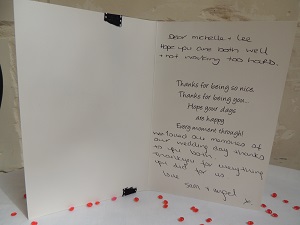 Dear Michelle + Lee
Hope you are both well
+ not working too hard.
Thanks for being so nice.
Thanks for being you...
Hope your days
are happy
Every moment through!
We loved our memories of
our wedding day thanks
to you both.
Thankyou for everything
you did for us
love
Sam +